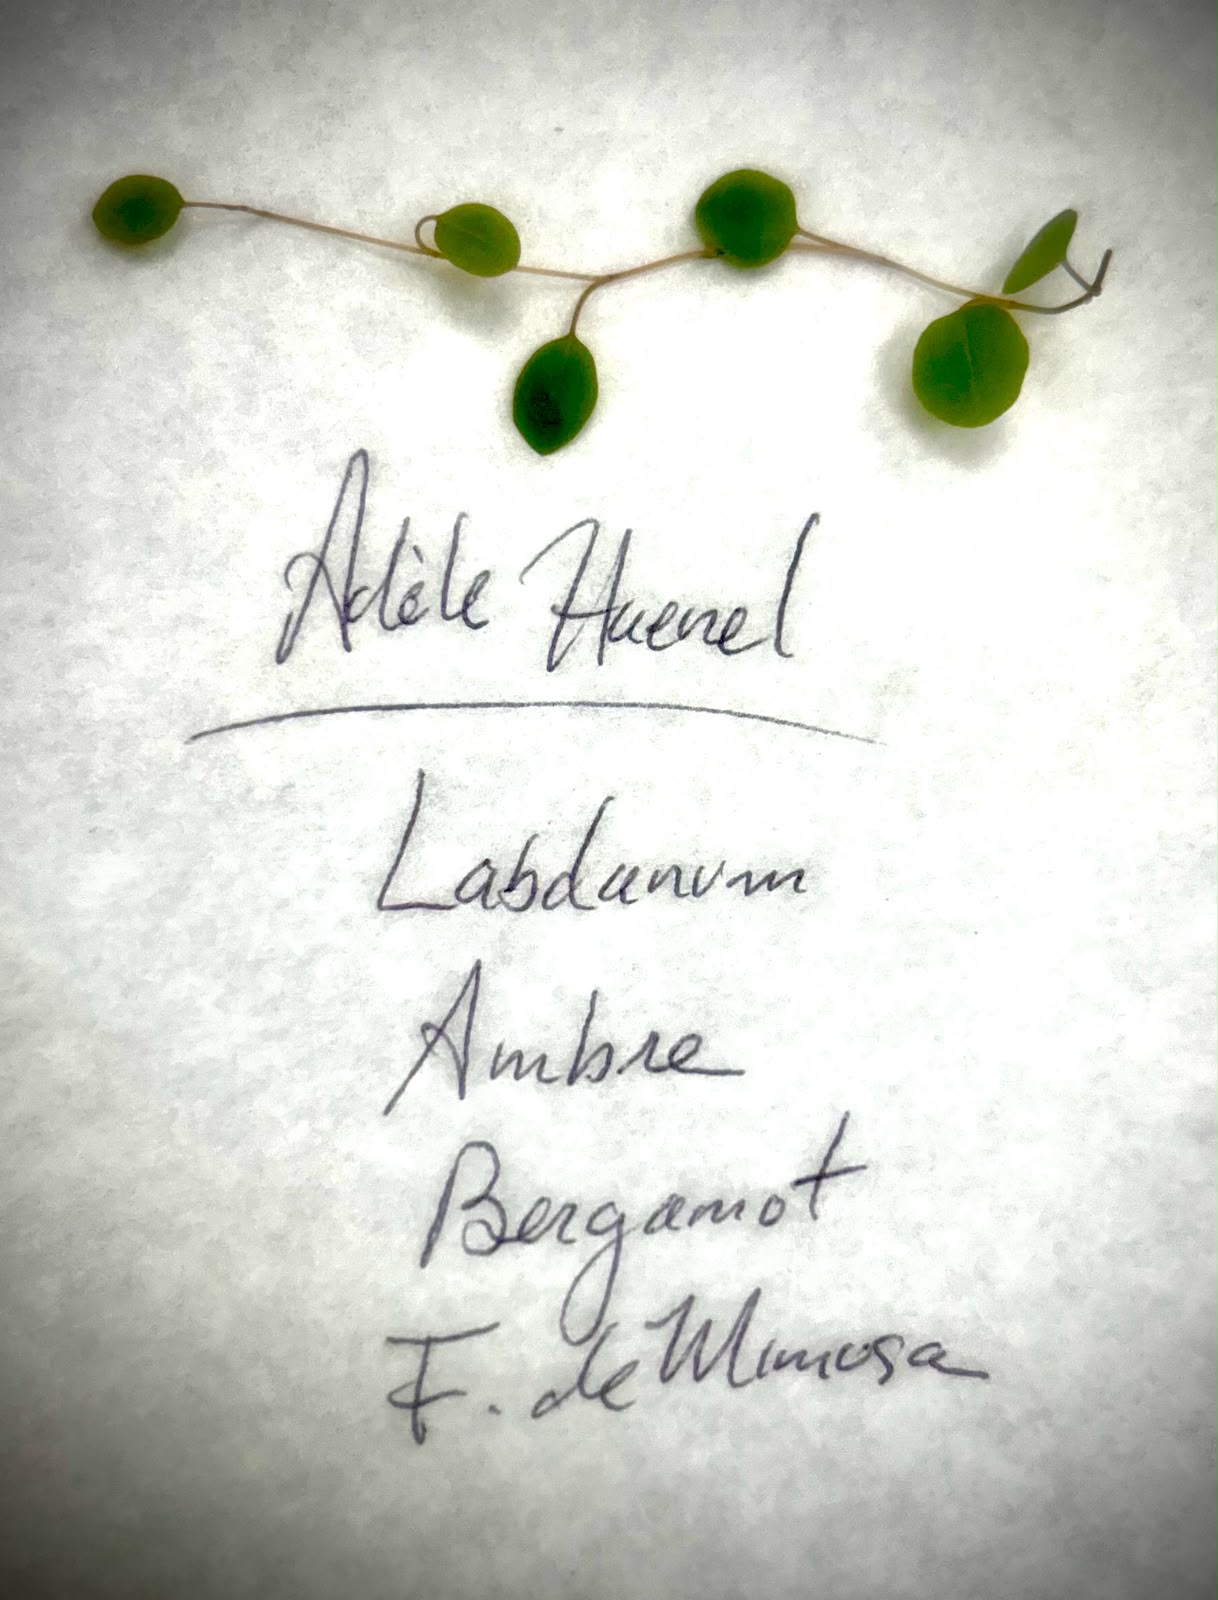 Adèle Haenel
Labdanum
Ambre
Bergamot
F. de Mimosa